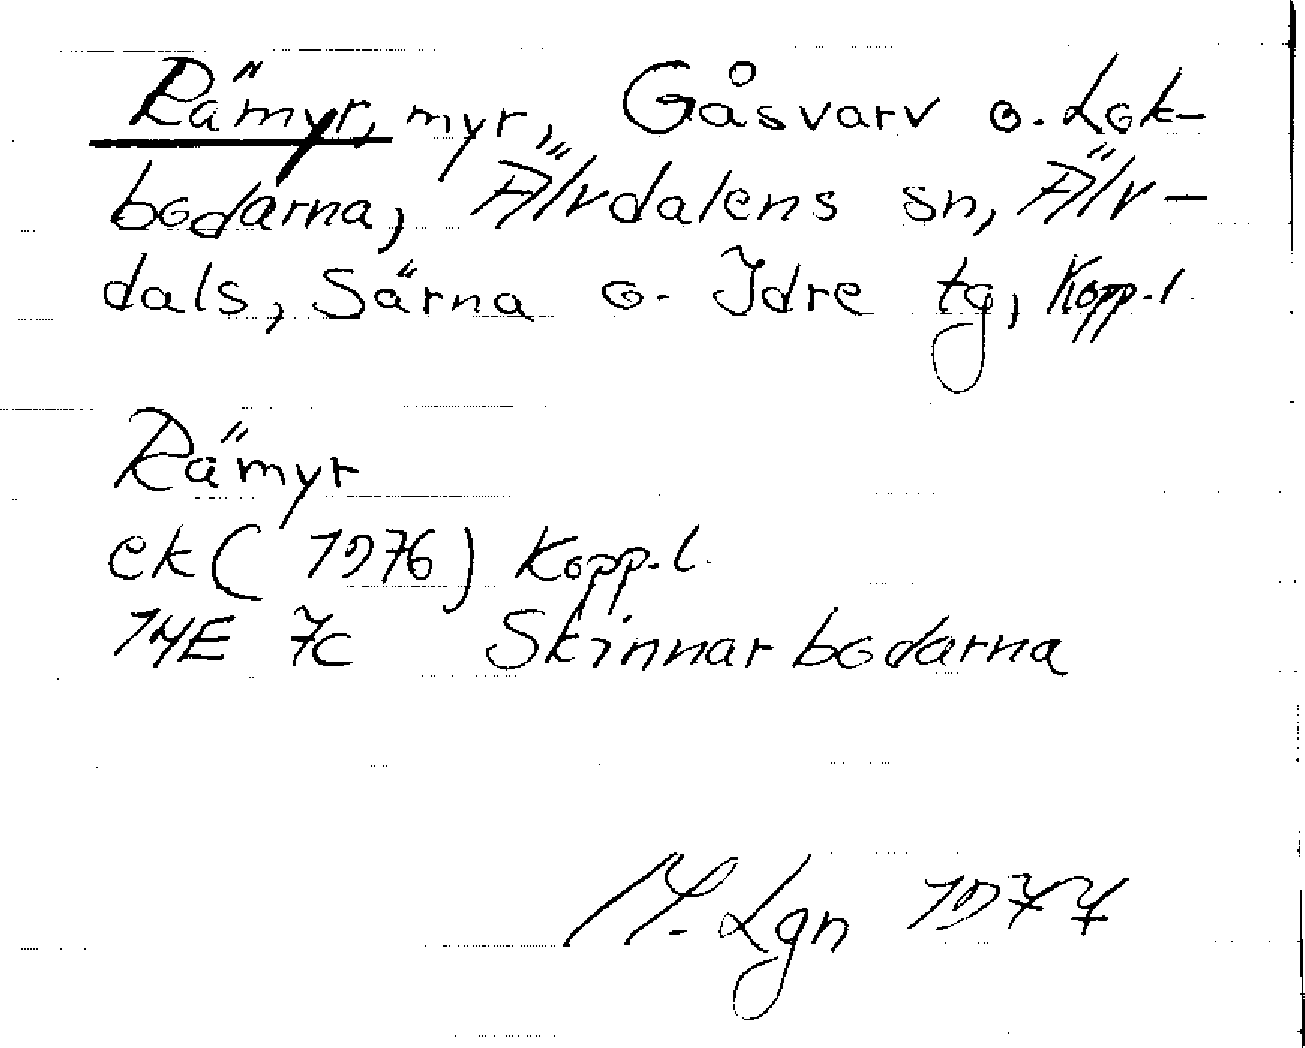 Rämyr, myr, Gåsvarv o. Lok-
bodarna, Älvdalens sn, Älv-
dals, Särna o. Idre tg, Kopp.l.
Rämyr
ek (1976) Kopp.l.
14E 7c Skinnarbodarna
M. Lgn 1977